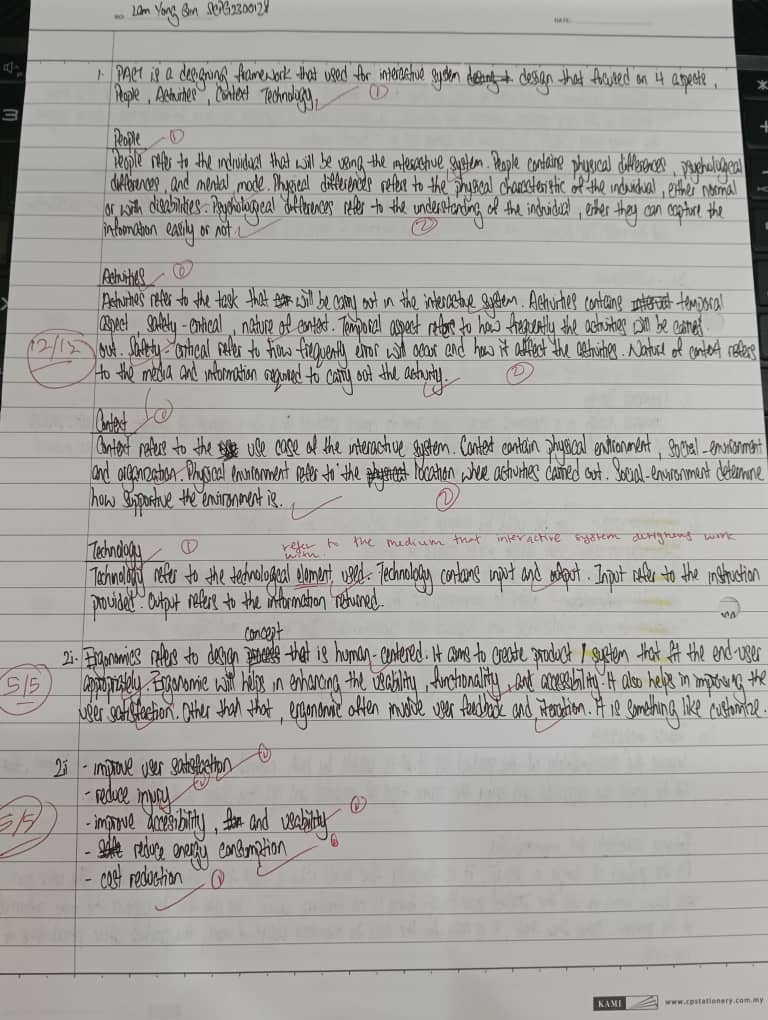 NO. Lam Yong Bin SCPG2300128 DATE:
1. PACT is a designing framework that used for interactive system design that focused on 4 aspects,
People, Activities, Context Technology. 1
People 1
People refer to the individual that will be using the interactive system. People contains physical differences, psychological
differences, and mental mode. Physical differences refers to the physical characteristic of the individual, either normal
or with disabilities. Psychological differences refer to the understanding of the individual, either they can capture the
information easily or not. 2
Activities 1
Activities refer to the task that will be carry out in the interactive system. Activities contains temporal
aspect, safety-critical, nature of context. Temporal aspect refers to how frequently the activities will be carried
out. Safety-critical refer to how frequently error will occur and how it affect the activities. Nature of context refers
12/12
to the media and information required to carry out the activity. 2
Context 1
Context refers to the use case of the interactive system. Context contain physical environment, social-environment
and organization. Physical environment refer to the location where activities carried out. Social-environment determine
how supportive the environment is. 2
Technology 1 refer to the medium that interactive system designers work
with.
Technology refer to the technological element used. Technology contains input and output. Input refer to the instruction
provided. Output refers to the information returned.
concept
2i. Ergonomics refers to design that is human-centered. It aims to create product / system that fit the end-user
5/5
appropriately. Ergonomic will helps in enhancing the usability, functionality, and accessibility. It also helps in improving the
user satisfaction. Other than that, ergonomic often involve user feedback and iteration. It is something like customize.
2ii - improve user satisfaction 1
- reduce injury 1
5/5
- improve accesibility, and usability 1
- reduce energy consumption 1
- cost reduction 1
KAMI www.cpstationery.com.my